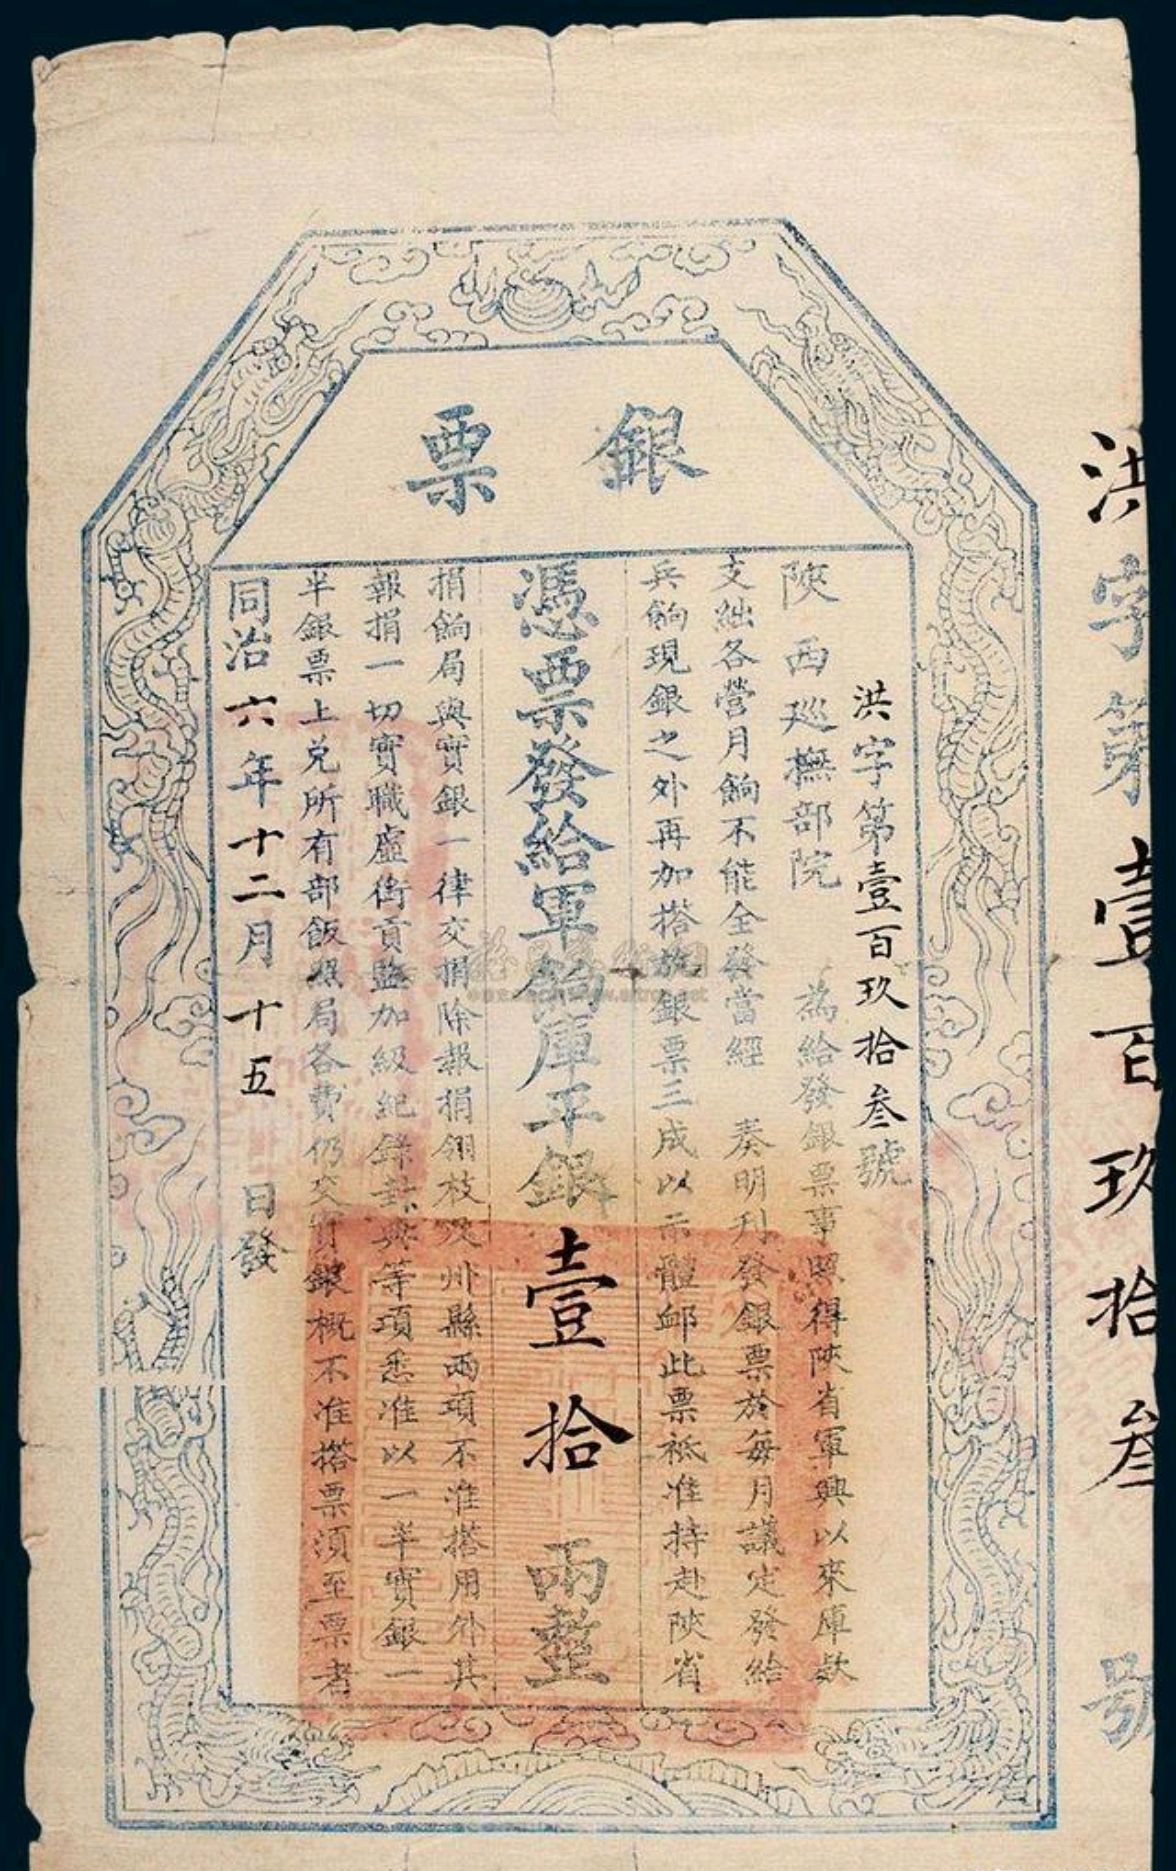 銀票
洪字第壹百玖拾叁號
洪字第壹百玖拾叁號
陝西巡撫部院 為給發銀票事照得陝省軍興以來庫款
支絀各營月餉不能全發當經 奏明刋發銀票於每月議定發給
兵餉現銀之外再加搭放銀票三成以示體卹此票祗准持赴陝省
憑票發給軍餉庫平銀壹拾兩整
捐餉局與實銀一律交捐除報捐翎枝及州縣兩項不准搭用外其
報捐一切實職虛銜貢監加級紀錄封典等項悉准以一半實銀一
半銀票上兌所有部飯照局各費仍交實銀概不准搭票須至票者
同治六年十二月十五日發